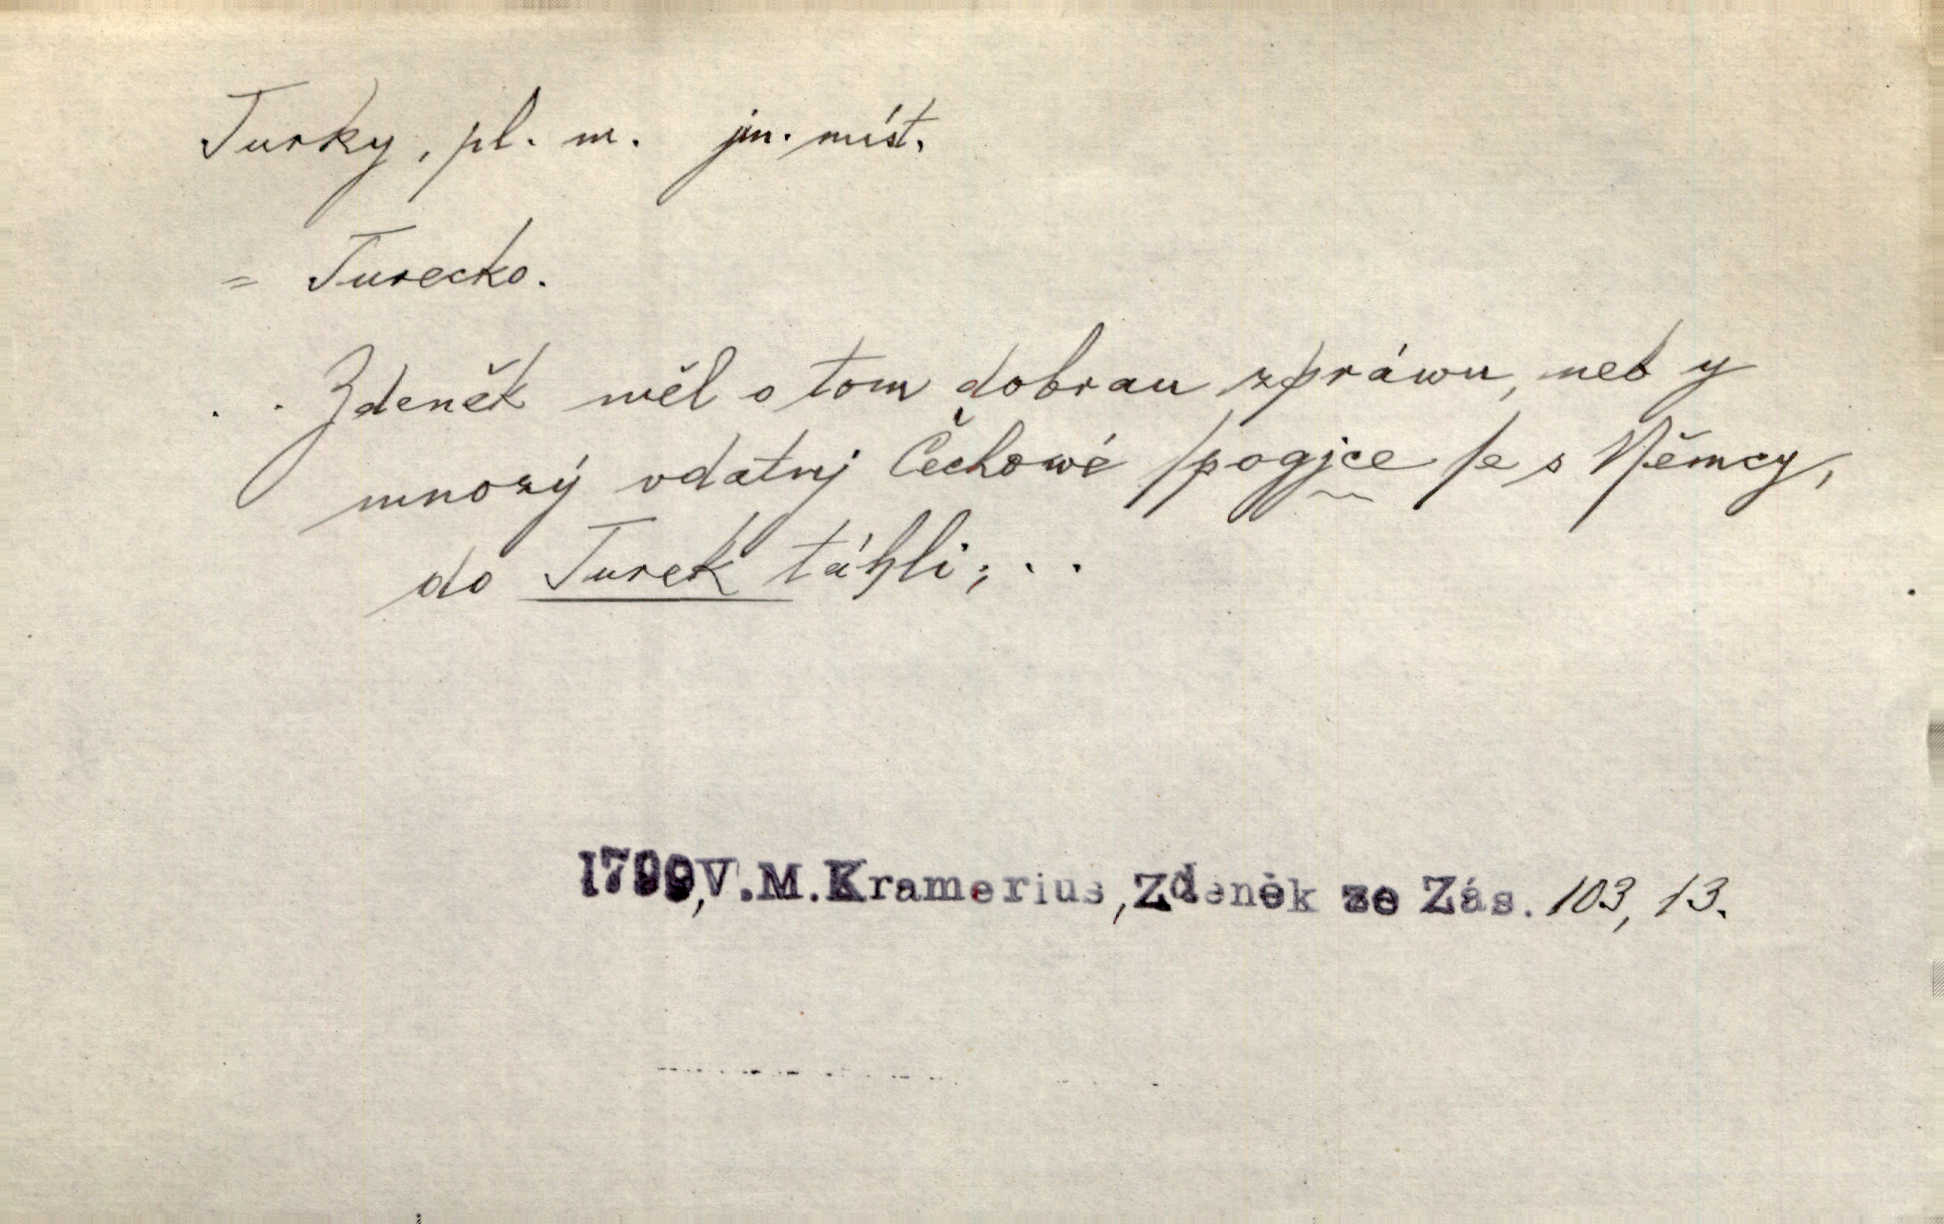 Turky, pl. m. jm. míst.
= Turecko.
. . Zdeněk měl o tom dobrau zpráwu, neb y
mnozý vdatnj Čechowé spogjce se s Němcy,
do Turek táhli; . .
1799, V. M. Kramerius, Zdeněk ze Zás. 103, 13.